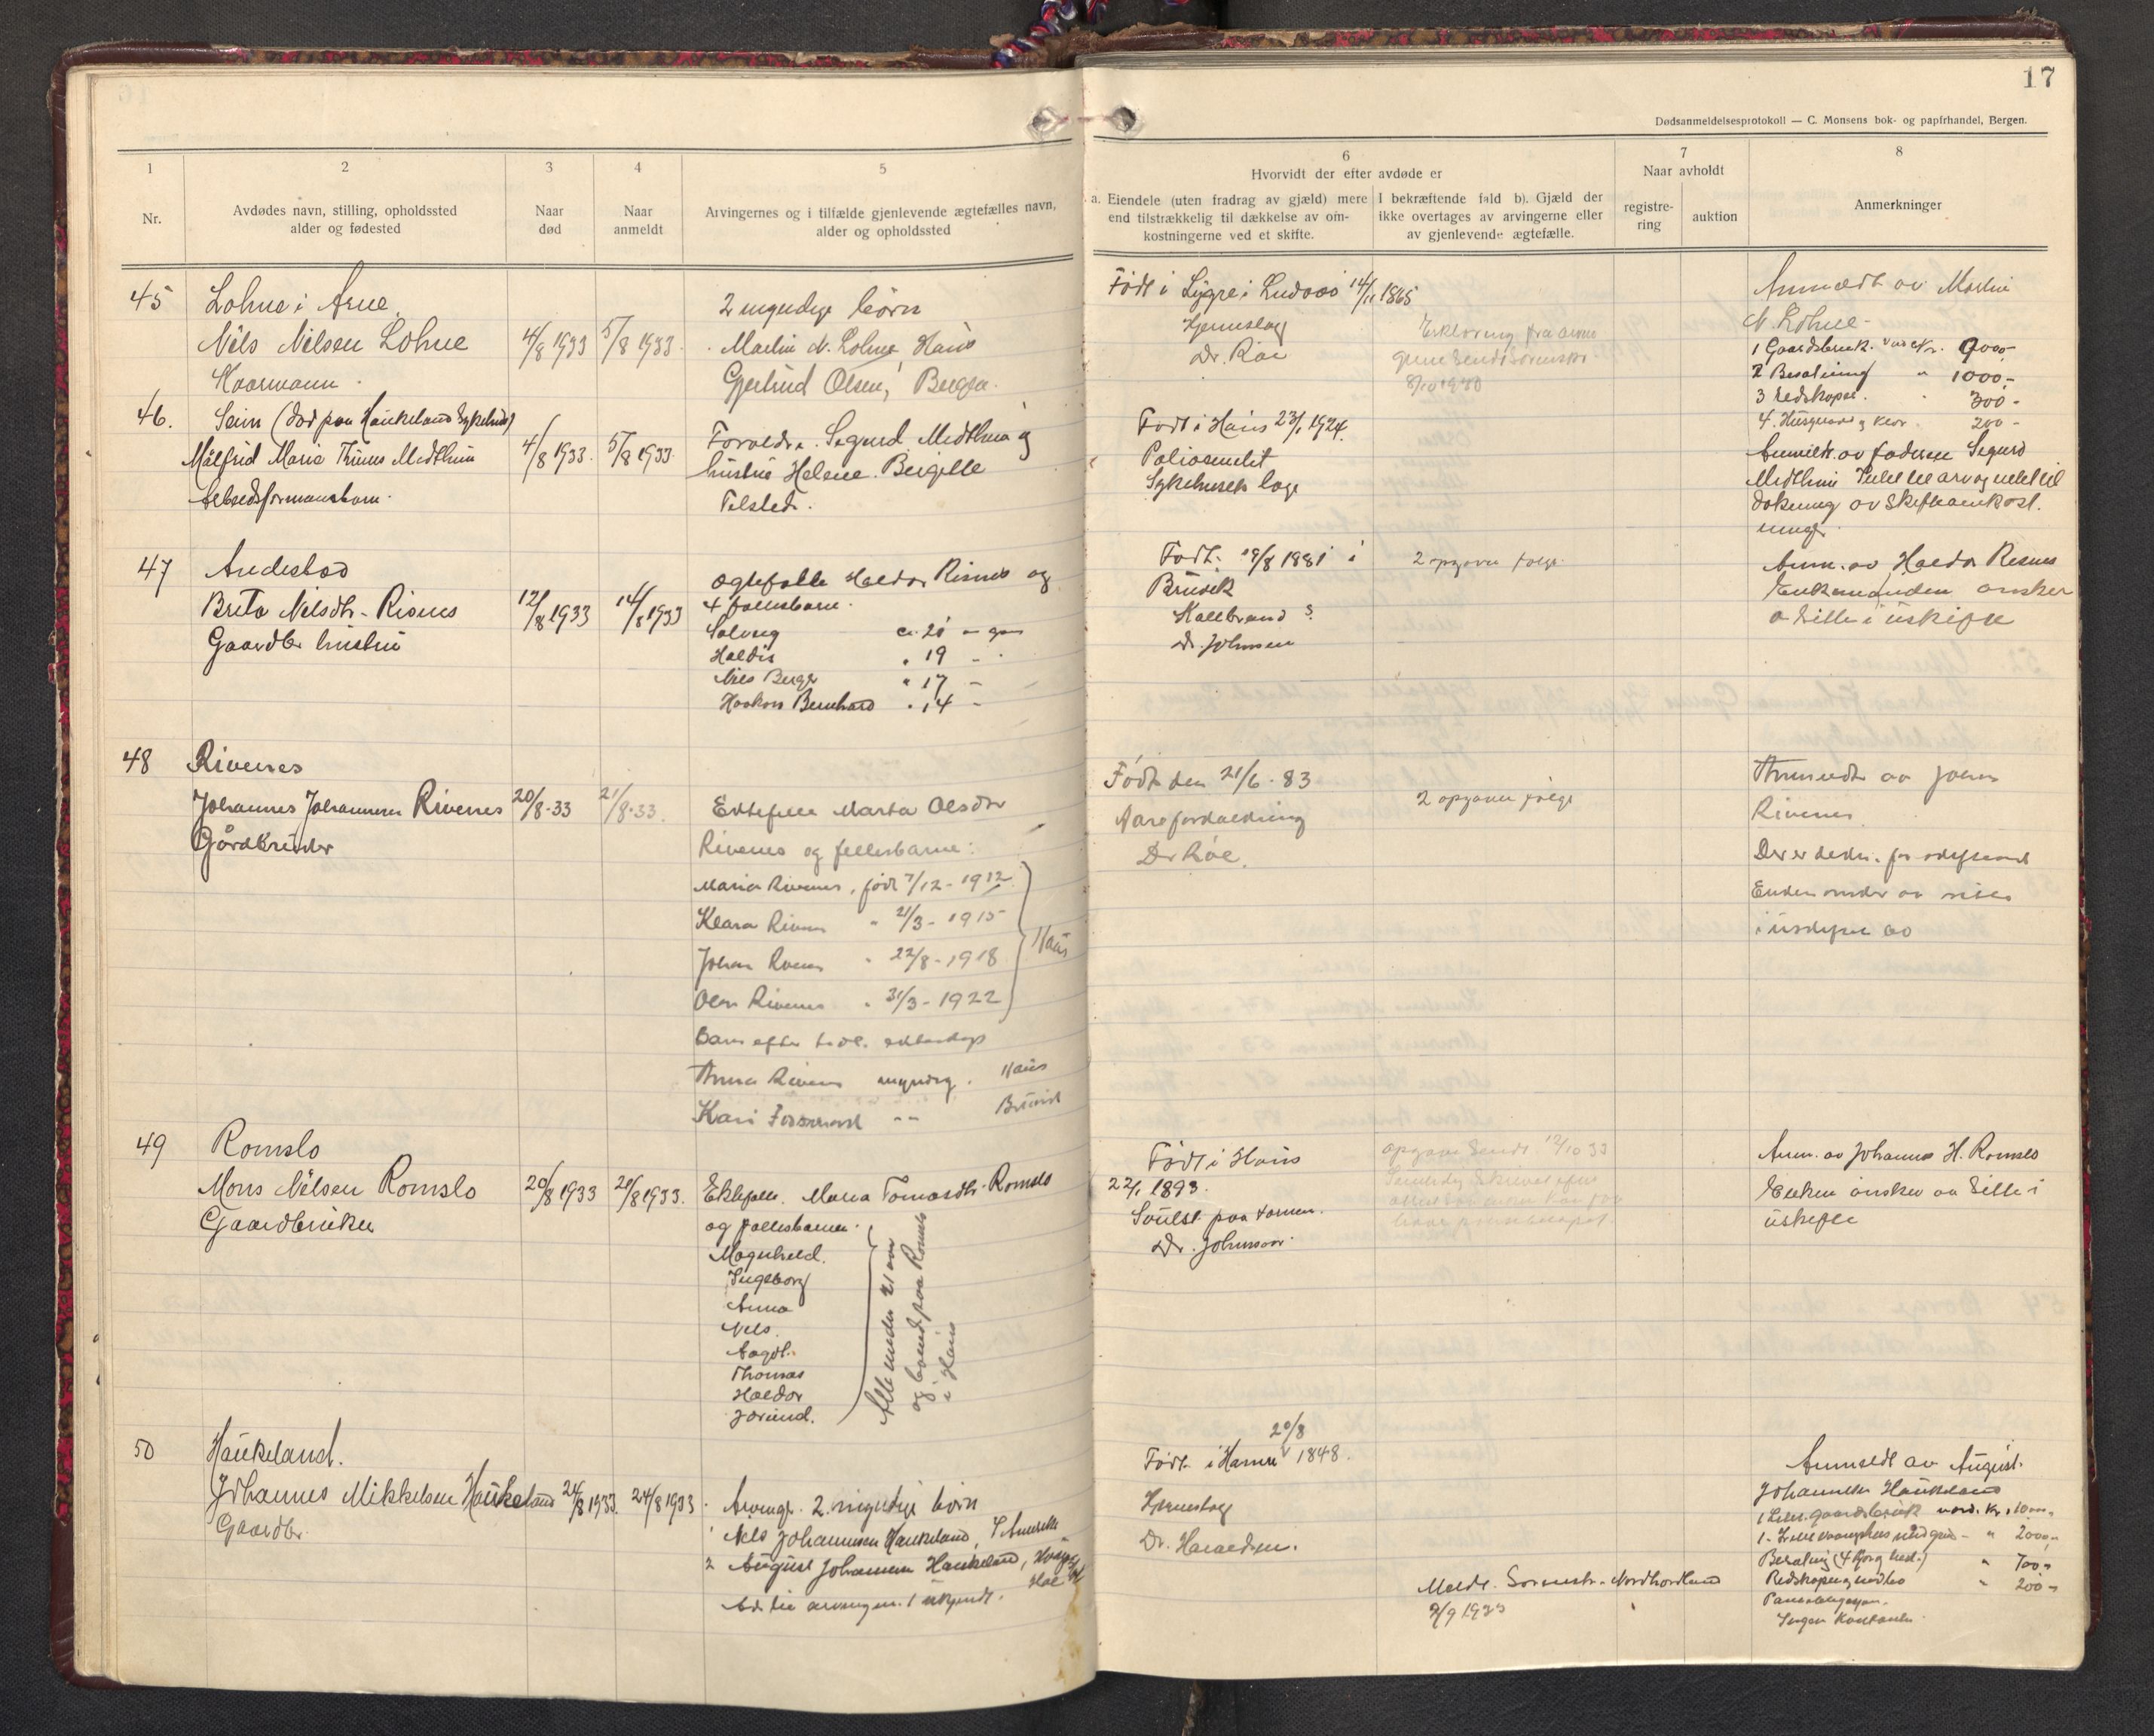 17
Dødsanmeldelsesprotokoll — C. Monsens bok- og papirhandel, Bergen.
1
2
3
4
5
6
7
8
Nr.
Avdødes navn, stilling, opholdssted
alder og fødested
Naar
død
Naar
anmeldt
Arvingernes og i tilfælde gjenlevende ægtefælles navn,
alder og opholdssted
Hvorvidt der efter avdøde er
a. Eiendele (uten fradrag av gjæld) mere
end tilstrækkelig til dækkelse av om-
kostningerne ved et skifte.
I bekræftende fald b). Gjæld der
ikke overtages av arvingerne eller
av gjenlevende ægtefælle.
Naar avholdt
registre-
ring
auktion
Anmerkninger
45
Lohne i Arne
Nils Nilsen Lohne
Kaarmann
4/8 1933
5/8 1933
2 myndige børn
Martin N. Lohne, Haus
Gjertrud Olsen, Bergen.
Født i Lygre i Lindaas 14/11 1865
Hjerneslag
Dr. Roe
Erklæring fra arvin
gene sendt Sorenskr.
Anmeldt av Martin
N. Lohne
1 Gaardsbruk. værd kr. 9000.-
2 Besætning " 1000.-
3 Redskaper. 300 -
4. Husgeraad og klær 200 -
46.
Seim (død paa Haukeland Sykehus)
Målfrid Marie Midthun
Arbeidsformannsbarn.
4/8 1933.
5/8 1933.
Foreldre. Sigurd Midthun og
hustru Helene Bergitte
Tilsted.
Født i Haus 23/1 1924.
Poliomelit
Sykehusets læge
Anmeldt av faderen Sigurd
Midthun Intet til arv og intet til
dekning av skifteomkost.
ninger
47
Andestad
Brita Nilsdtr. Risnes
Gaardbr. hustru
12/8 1933
14/8 1933
Ægtefælle Haldor Risnes og
4 fællesbarn.
Solveig ca. 20
Haldis " 19 -
Nils Berger " 17 -
Haakon Bernhard " 14 -
Født 19/8 1881 i
Bruvik
Koldbrand ?
Dr. Johnsen
2 opgaver følge
Anm. av Haldor Risnes
Enkemanden ønsker
å sitte i uskifte
48
Rivenes
Johannes Johannesen Rivenes
Gårdbruker
20/8-33
21/8-33.
Ektefelle Marta Olsdtr
Rivenes og fellesbarn:
Maria Rivenes, født 7/12-1912
Klara Rivenes " 21/3-1915
Johan Rivenes " 22/8-1918
Olav Rivenes " 31/3-1922
Haus
Barn efter tidl. ekteskap
Anna Rivenes myndig. Haus
Kari -"- Bruvik
Født den 21/6-83
Aareforkalkning
Dr Roe.
2 opgaver følge
Anmeldt av Johan
Rivenes
Enken ønsker av sitte
i uskiftet bo
49
Romslo
Mons Nilsen Romslo
Gaardbruker
20/8 1933
21/8 1933.
Ektefælle. Maria Tomasdtr. Romslo
og fællesbarn.
Magnhild.
Ingeborg
Anna
Nils.
Thomas
Haldor
Jorund.
Alle under 21 aar
og boende paa Romslo
i Haus
Født i Haus
22/1 1893.
Svulst paa tarmen.
Dr. Johnson.
opgave sendt 12/10 33
Anm. av Johannes H. Romslo
Enken ønsker aa sitte i
uskifte
50
Haukeland.
Johannes Mikkelsen Haukeland
Gaardbr.
24/8 1933.
24/8 1933.
Arvinger. 2 myndige børn
1 Nils Johannesen Haukeland, i Amerika
2 August Johannesen Haukeland,
20/8
Født i Hamre 1848.
Hjerneslag
Dr. Haraldsen.
Meldt Sorenskr. Nordhordland
2/9 1933
Anmeldt av August
Johannesen Haukeland
1 gaardsbruk værd. kr. 1000.-
" 2000.-
Besætning (4 kjør og hest.) " 700.-
Redskaper og indbo " 200.-
Ingen kontanter.